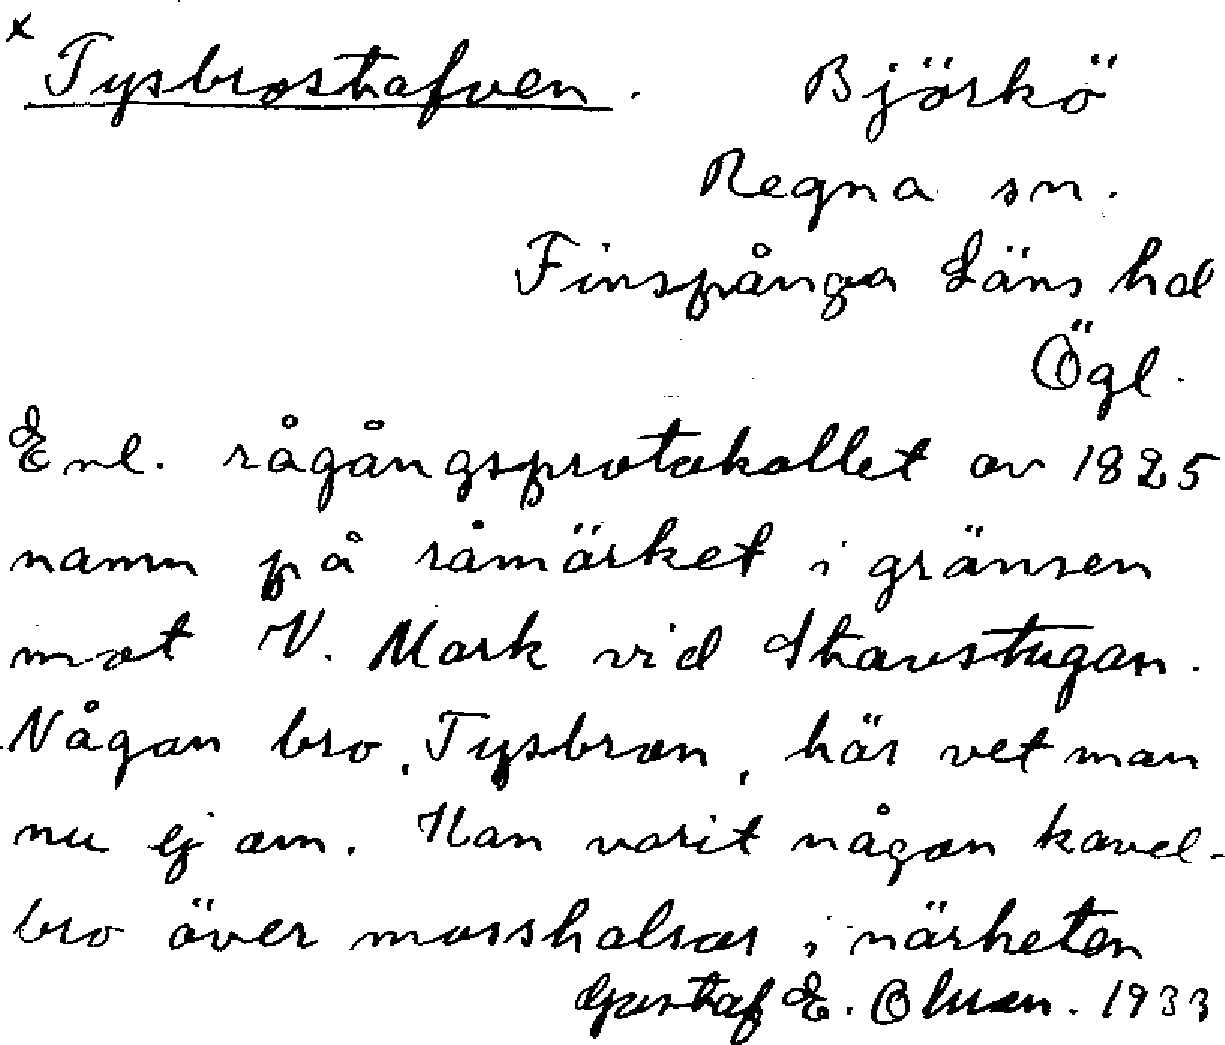 x
Tysbrostafven. Björkö
Regna sn.
Finspånga Läns hd
Ögl.
Enl. rågångsprotokollet av 1825
namn på råmärket i gränsen
mot V. Mark vid Stavstugan.
Någon bro, Tysbron, här vet man
nu ej om. Kan varit någon kavel-
bro över mosshalsar i närheten
Gustaf E. Olsson. 1933